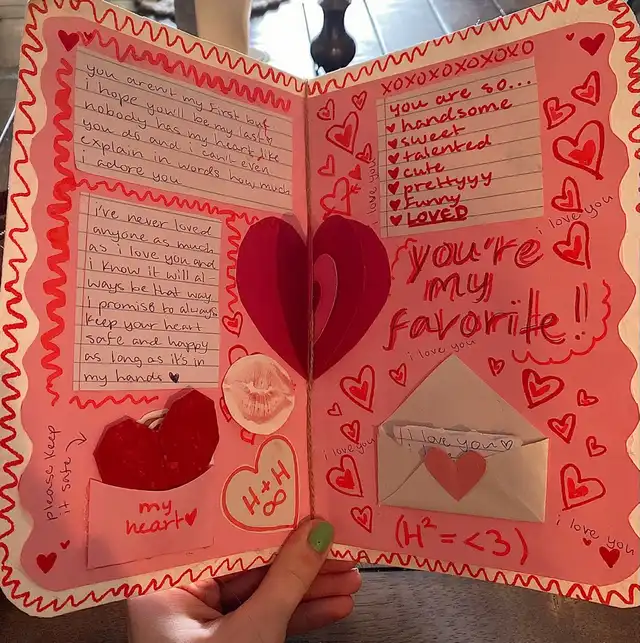 you aren't my first but
i hope you'll be my last
nobody has my heart like
you do and i can't even
explain in words how much
i adore you
i've never loved
anyone as much
as i love you and
i know it will al
ways be that way
i promise to always
keep your heart
safe and happy
as long as it's in
my hands ♥
please keep
it safe
my
heart ♥
H+H
∞
xoxoxoxoxoxo
you are so...
♥ handsome
♥ sweet
♥ talented
♥ cute
♥ prettyyy
♥ funny
♥ LOVED
i love you
i love you
you're
my
favorite!!
i love you
i love you
i love you ♡
(H²=<3)
i love you
i love you